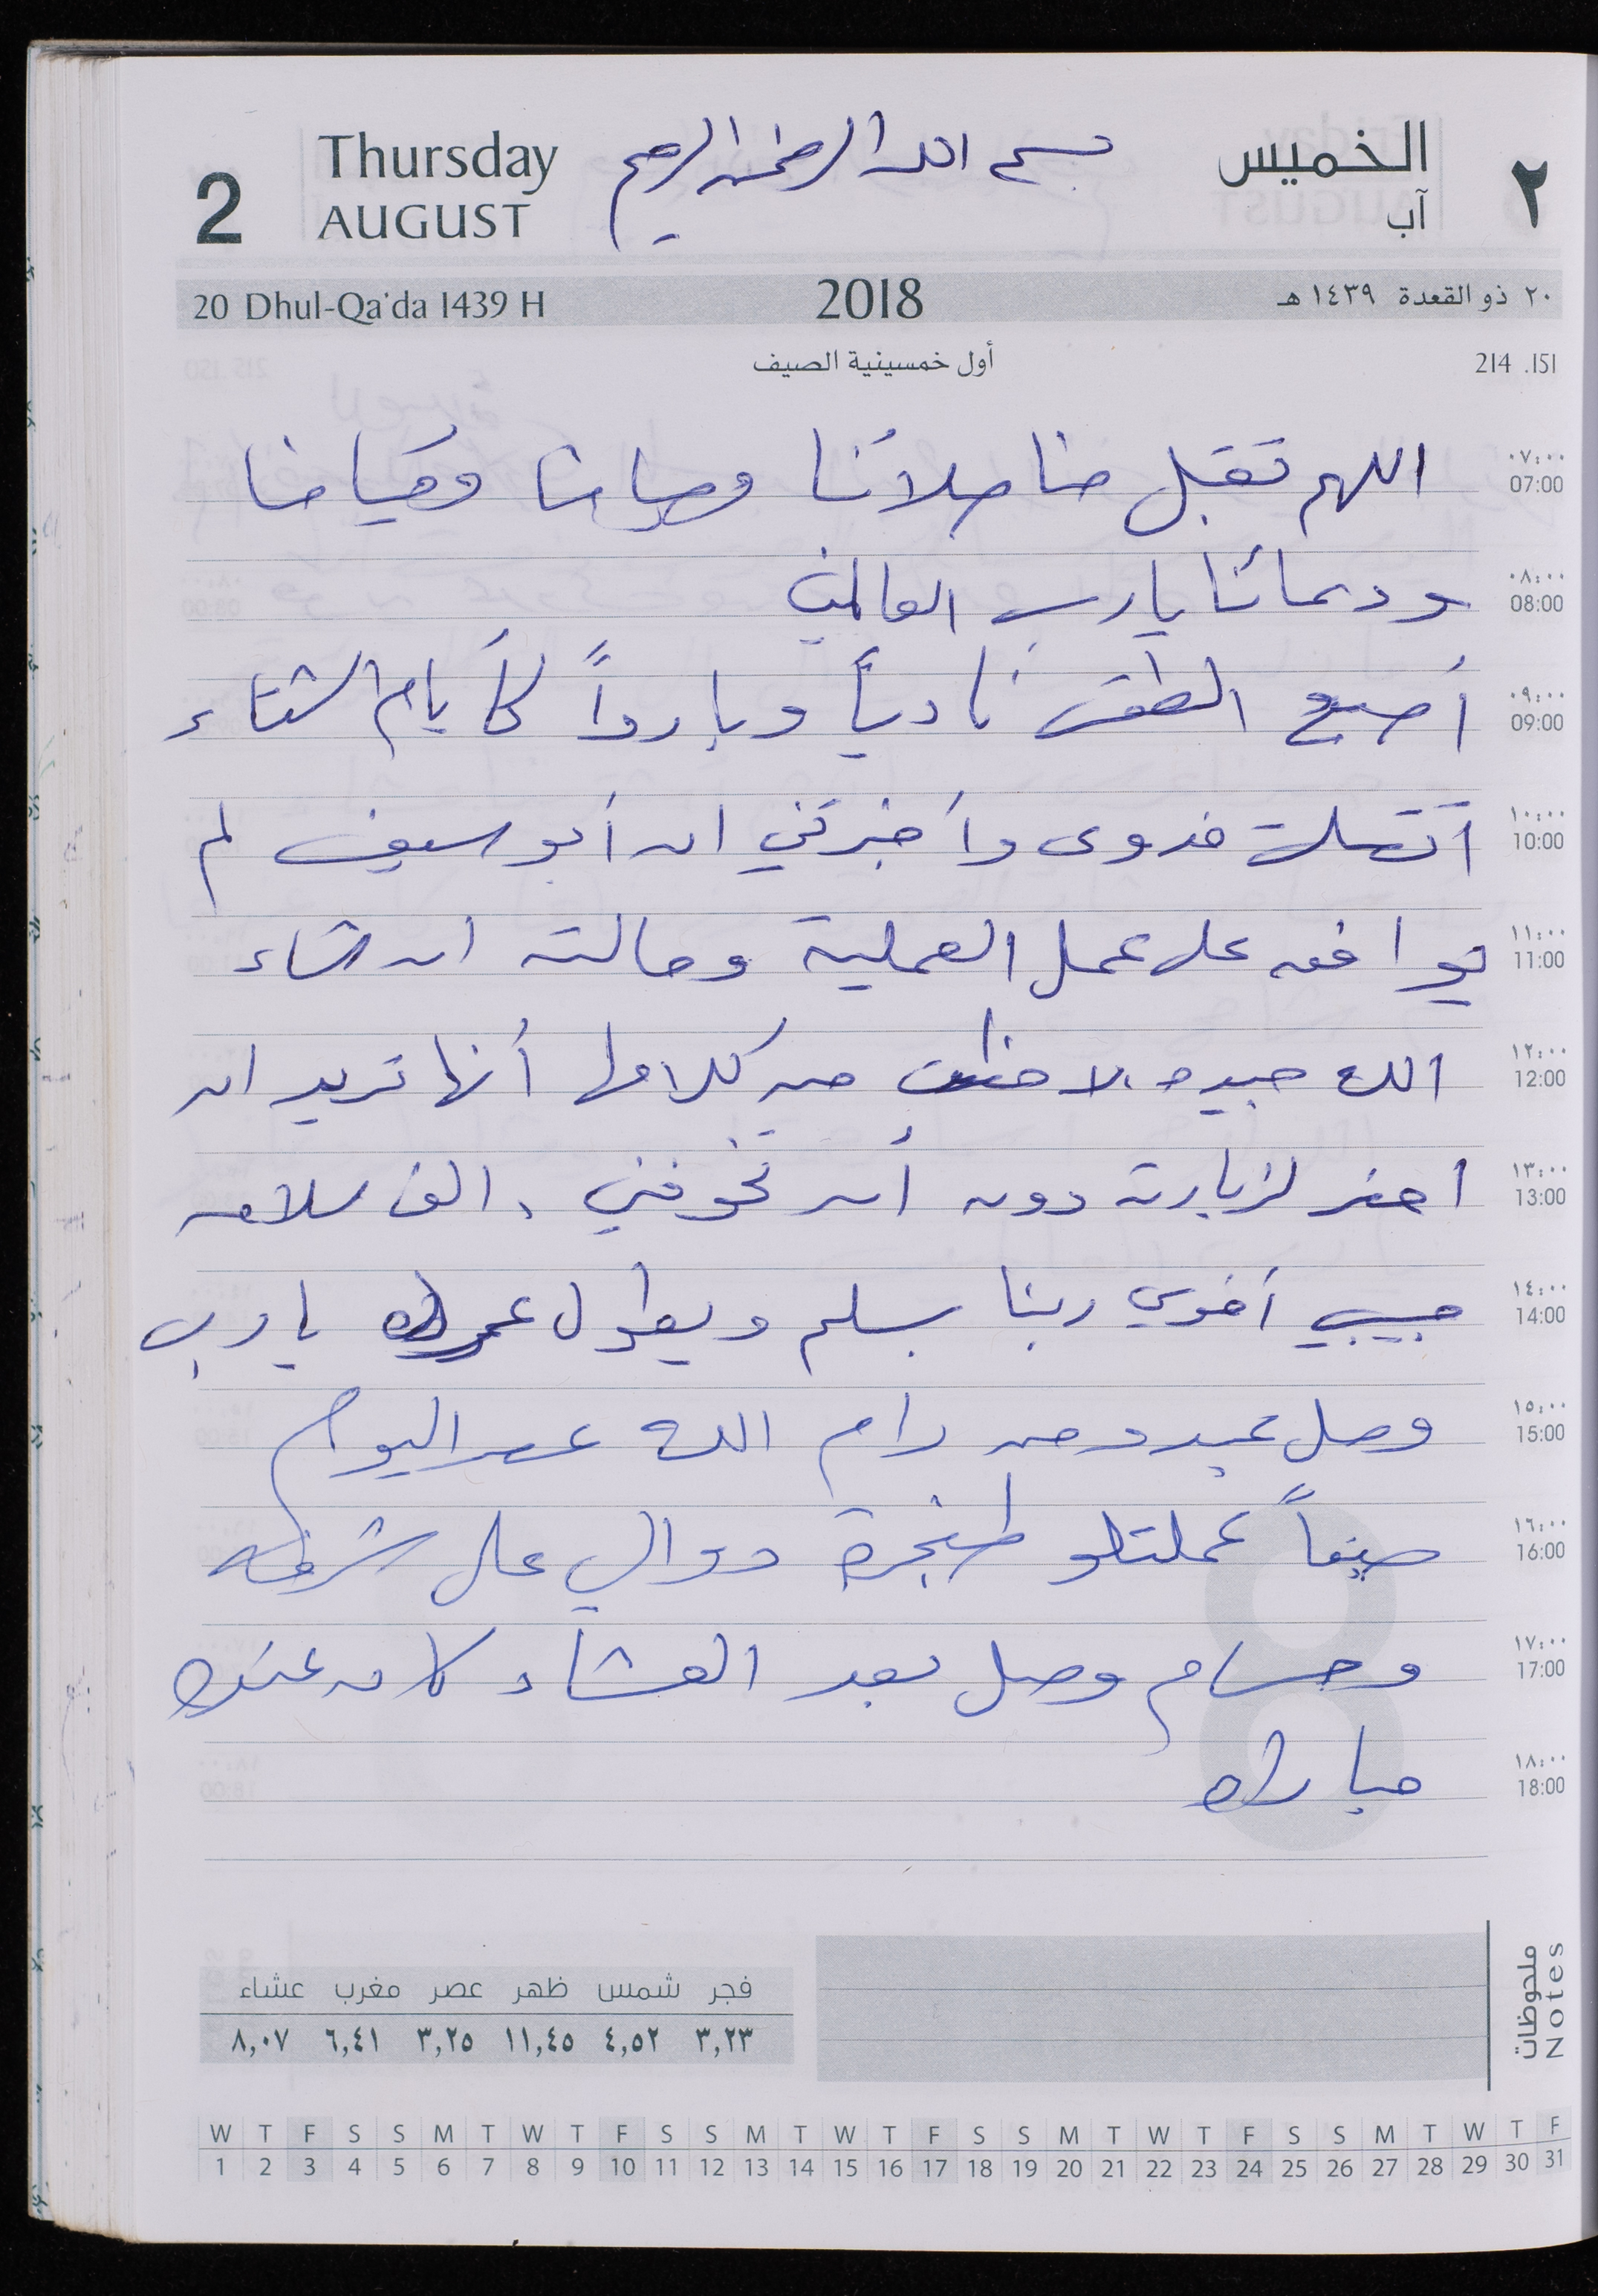 2
Thursday
AUGUST
بسم الله الرحمن الرحيم
الخميس
آب
٢
20 Dhul-Qa'da 1439 H
2018
٢٠ ذو القعدة ١٤٣٩ هـ
أول خمسينية الصيف
214 .151
٠٧:٠٠
07:00
اللهم تقبل منا صلاتنا وصيامنا وقيامنا
٠٨:٠٠
08:00
ودعائنا يا رب العالمين
٠٩:٠٠
09:00
أصبح الطقس نادياً وبارداً كأيام الشتاء
١٠:٠٠
10:00
اتصلت فدوى وأخبرتني ان أبو سيف لم
١١:٠٠
11:00
يوافق على عمل العملية وحالته ان شاء
١٢:٠٠
12:00
الله جيده لاحظت من كلامها أنها تريد ان
١٣:٠٠
13:00
احضر لزيارته دون أن تخوفني، الف سلامه
١٤:٠٠
14:00
حبيبي أخوي ربنا يسلم ويطول عمرك يا رب
١٥:٠٠
15:00
وصل عبد من رام الله عصر اليوم
١٦:٠٠
16:00
صنعاً عملتلو طنجرة دوالي على شرفه
١٧:٠٠
17:00
وحسام وصل بعد العشاء كان عنده
١٨:٠٠
18:00
مباراه
ملحوظات
Notes
فجر شمس ظهر عصر مغرب عشاء
٣,٢٣ ٤,٥٢ ١١,٤٥ ٣,٢٥ ٦,٤١ ٨,٠٧
W T F S S M T W T F S S M T W T F S S M T W T F S S M T W T F
1 2 3 4 5 6 7 8 9 10 11 12 13 14 15 16 17 18 19 20 21 22 23 24 25 26 27 28 29 30 31